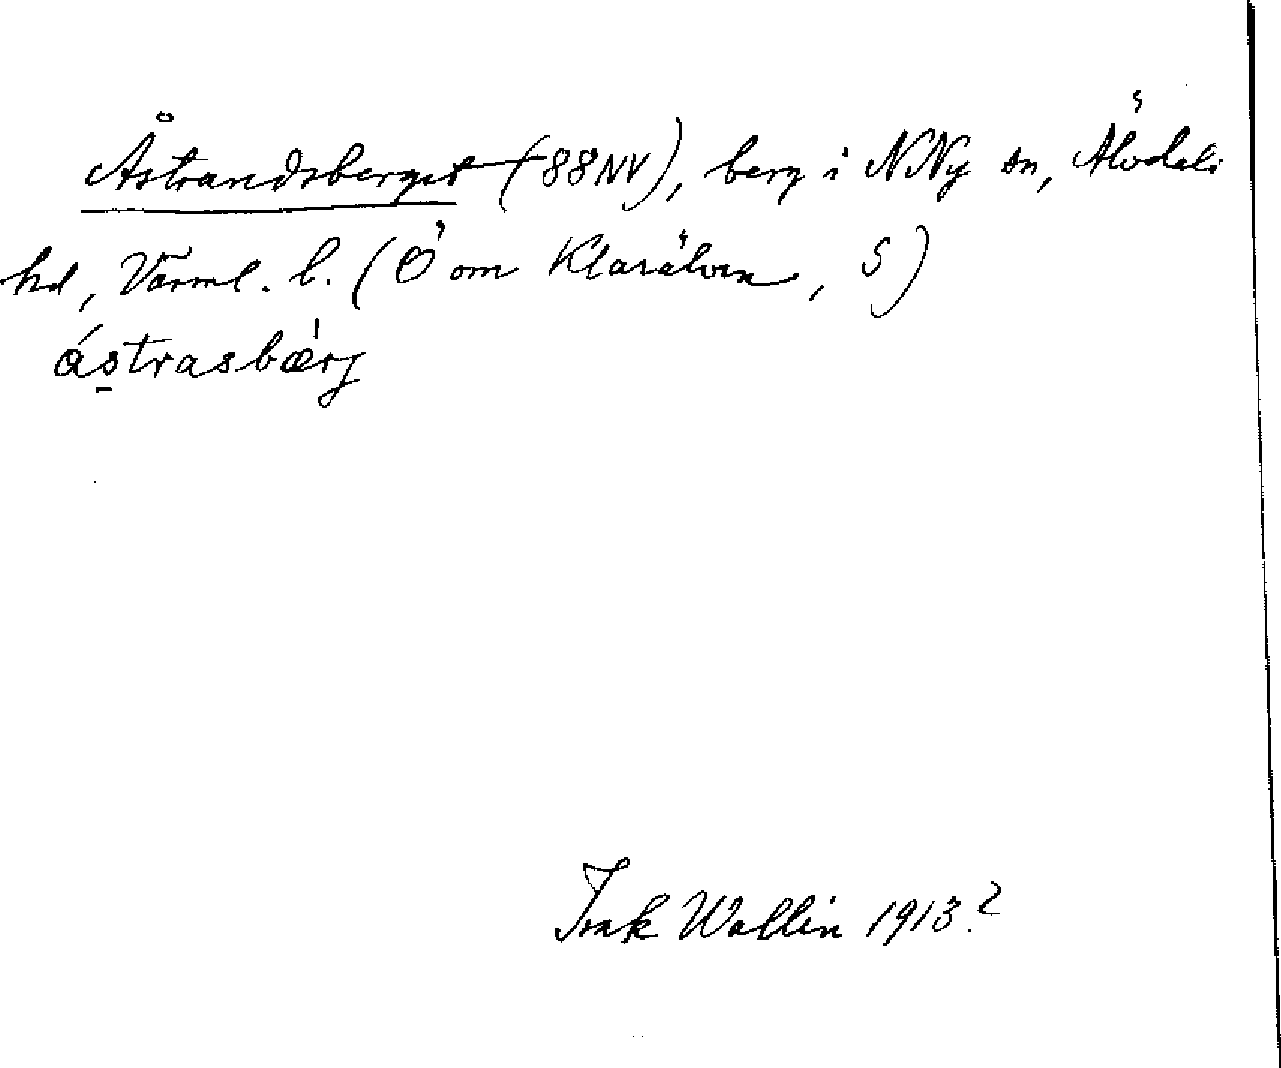 Åstrandsberget (88NV), berg i N Ny sn, Älvdals
hd, Värml. l. (Ö om Klarälven, S)
ástrasbǽrj
Isak Wallin 1913?